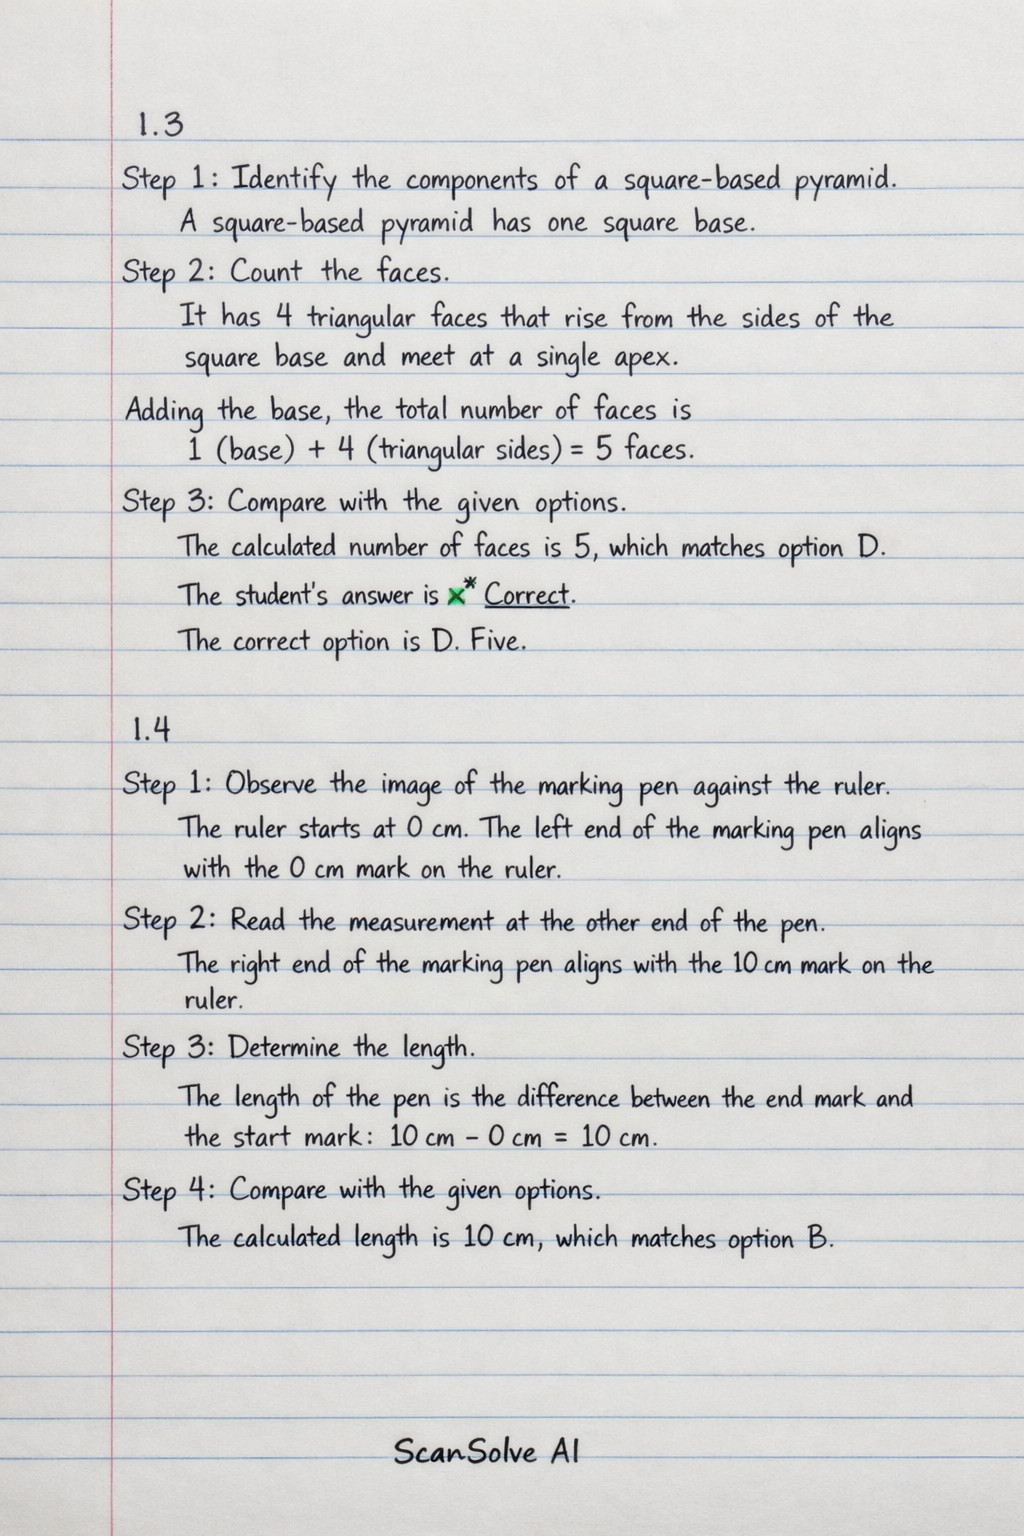 1.3
Step 1: Identify the components of a square-based pyramid.
A square-based pyramid has one square base.
Step 2: Count the faces.
It has 4 triangular faces that rise from the sides of the
square base and meet at a single apex.
Adding the base, the total number of faces is
1 (base) + 4 (triangular sides) = 5 faces.
Step 3: Compare with the given options.
The calculated number of faces is 5, which matches option D.
The student's answer is x* Correct.
The correct option is D. Five.
1.4
Step 1: Observe the image of the marking pen against the ruler.
The ruler starts at 0 cm. The left end of the marking pen aligns
with the 0 cm mark on the ruler.
Step 2: Read the measurement at the other end of the pen.
The right end of the marking pen aligns with the 10 cm mark on the
ruler.
Step 3: Determine the length.
The length of the pen is the difference between the end mark and
the start mark: 10 cm - 0 cm = 10 cm.
Step 4: Compare with the given options.
The calculated length is 10 cm, which matches option B.
ScanSolve AI